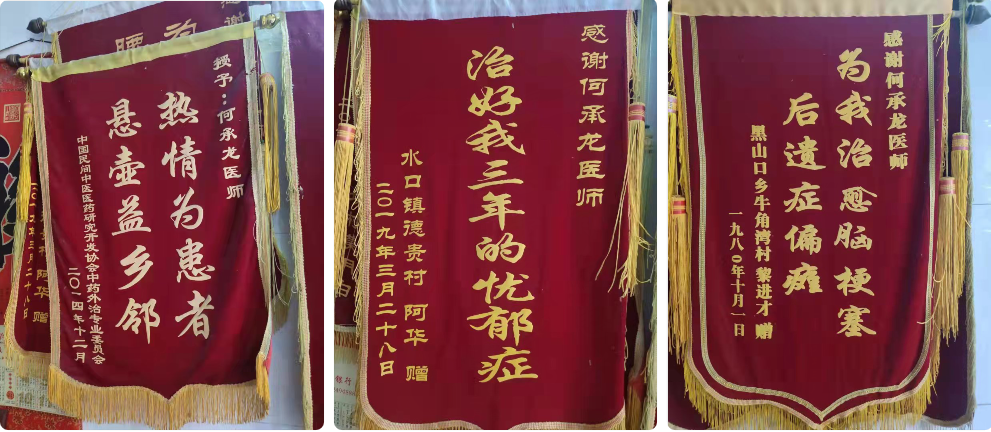 授予：何承龙医师
热情为患者
悬壶益乡邻
中国民间中医医药研究开发协会中药外治专业委员会
二〇一四年十二月
感谢何承龙医师
治好我三年的忧郁症
水口镇德贵村 阿华 赠
二〇一九年三月二十八日
感谢何承龙医师
为我治愈脑梗塞
后遗症偏瘫
黑山口乡牛角湾村 黎进才 赠
一九八〇年十月一日